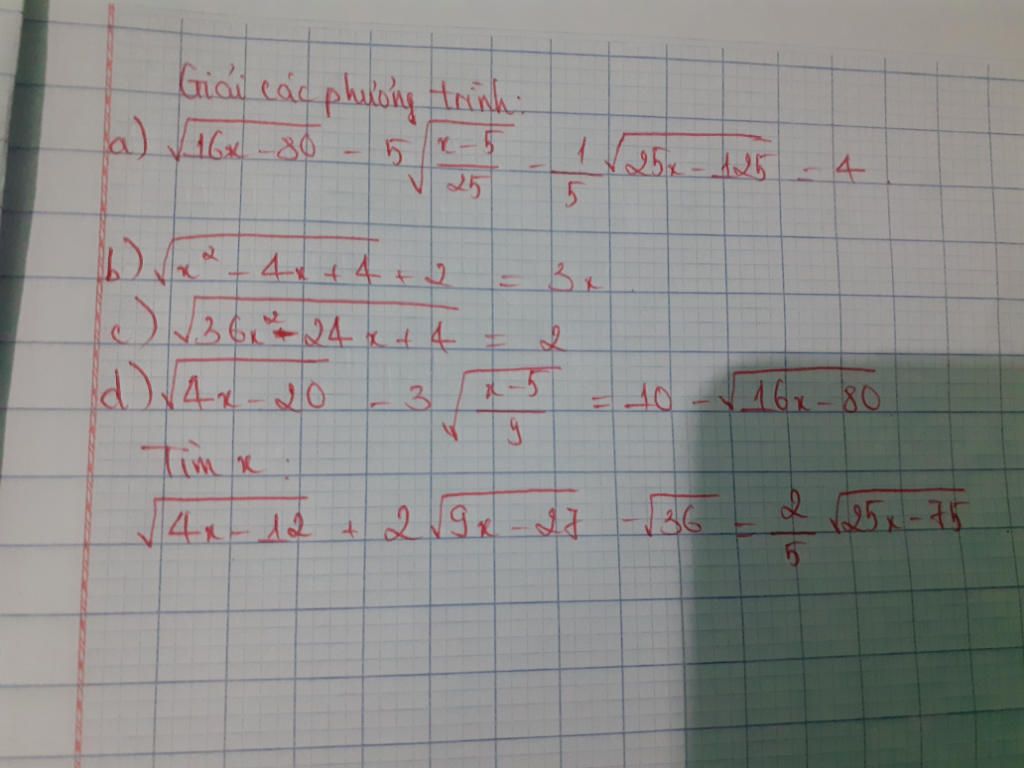 Giải các phương trình:
a) √(16x - 80) - 5√((x - 5)/25) - 1/5 √(25x - 125) = 4
b) √(x² - 4x + 4) + 2 = 3x
c) √(36x² - 24x + 4) = 2
d) √(4x - 20) - 3√((x - 5)/9) = 10 - √(16x - 80)
Tìm x:
√(4x - 12) + 2√(9x - 27) - √36 = 2/5 √(25x - 75)